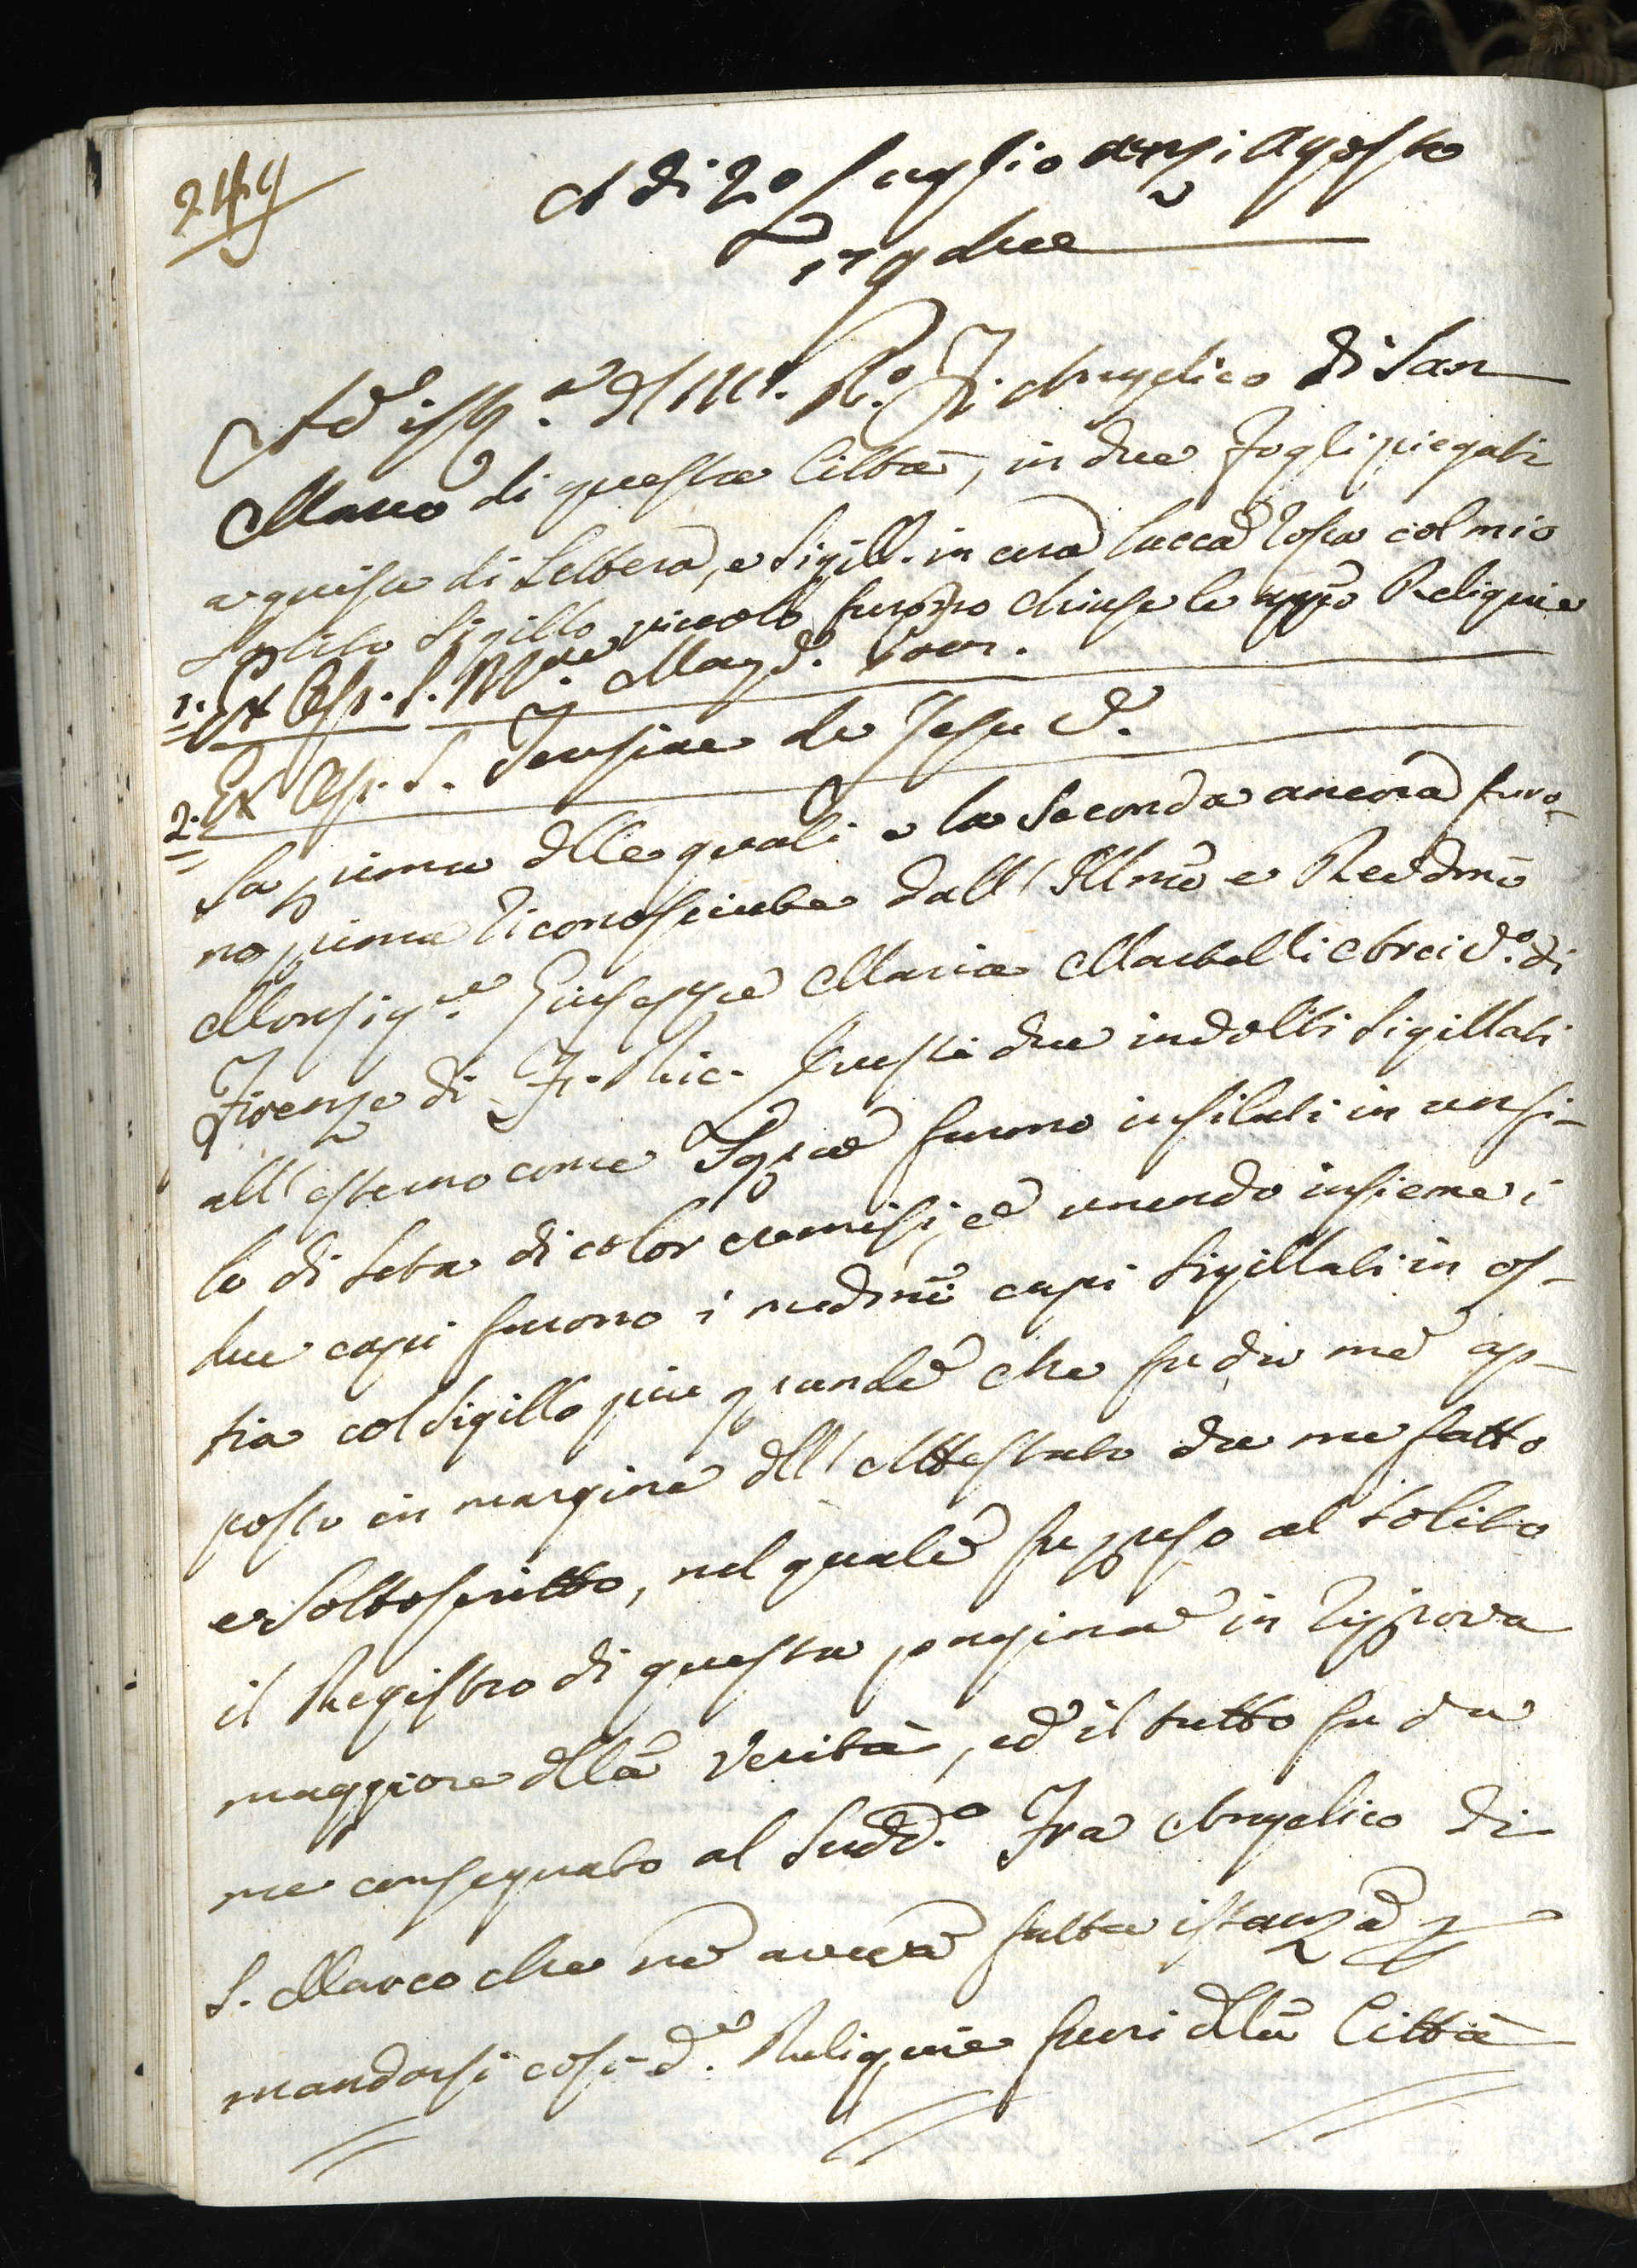 244
A di 20 Luglio anzi Agosto
179due
Ad ist.ª del M.º R.º Fr. Angelico di San
Marco di questa Città, in due fogli piegati
a guisa di Lettera, e sigill. in cera lacca rossa col mio
solito sigillo piccolo furono chiuse le Reliquie
1. Ex Oss. S. M.ae Magd.
2. Ex Oss. S. Teresiae de Jesu V.
La prima dlle quali e la seconda ancora furo-
no prima riconosciute dall' Illmõ e Revdmõ
Monsig.re Giuseppe Maria Martelli Arciv.º di
Firenze di Fe. Ric. Questi due indetti sigillati
all' esterno come Sopra furono infilati in un fi-
lo di seta di color cremisi, e unendo insieme i
due capi furono i medmĩ capi sigillati in os-
tia col sigillo piu grande che fu da me ap-
posto in margine dll' Attestato da me fatto
e sottoscritto, nel quale fu preso al solito
il Registro di questa pagina in riprova
maggiore dlla verità, ed il tutto fu da
me consegnato al Sudd.º Fra Angelico di
S. Marco che ne aveva fatta istanza p
mandarsi cosi d.e Reliquie fuori dlla Città